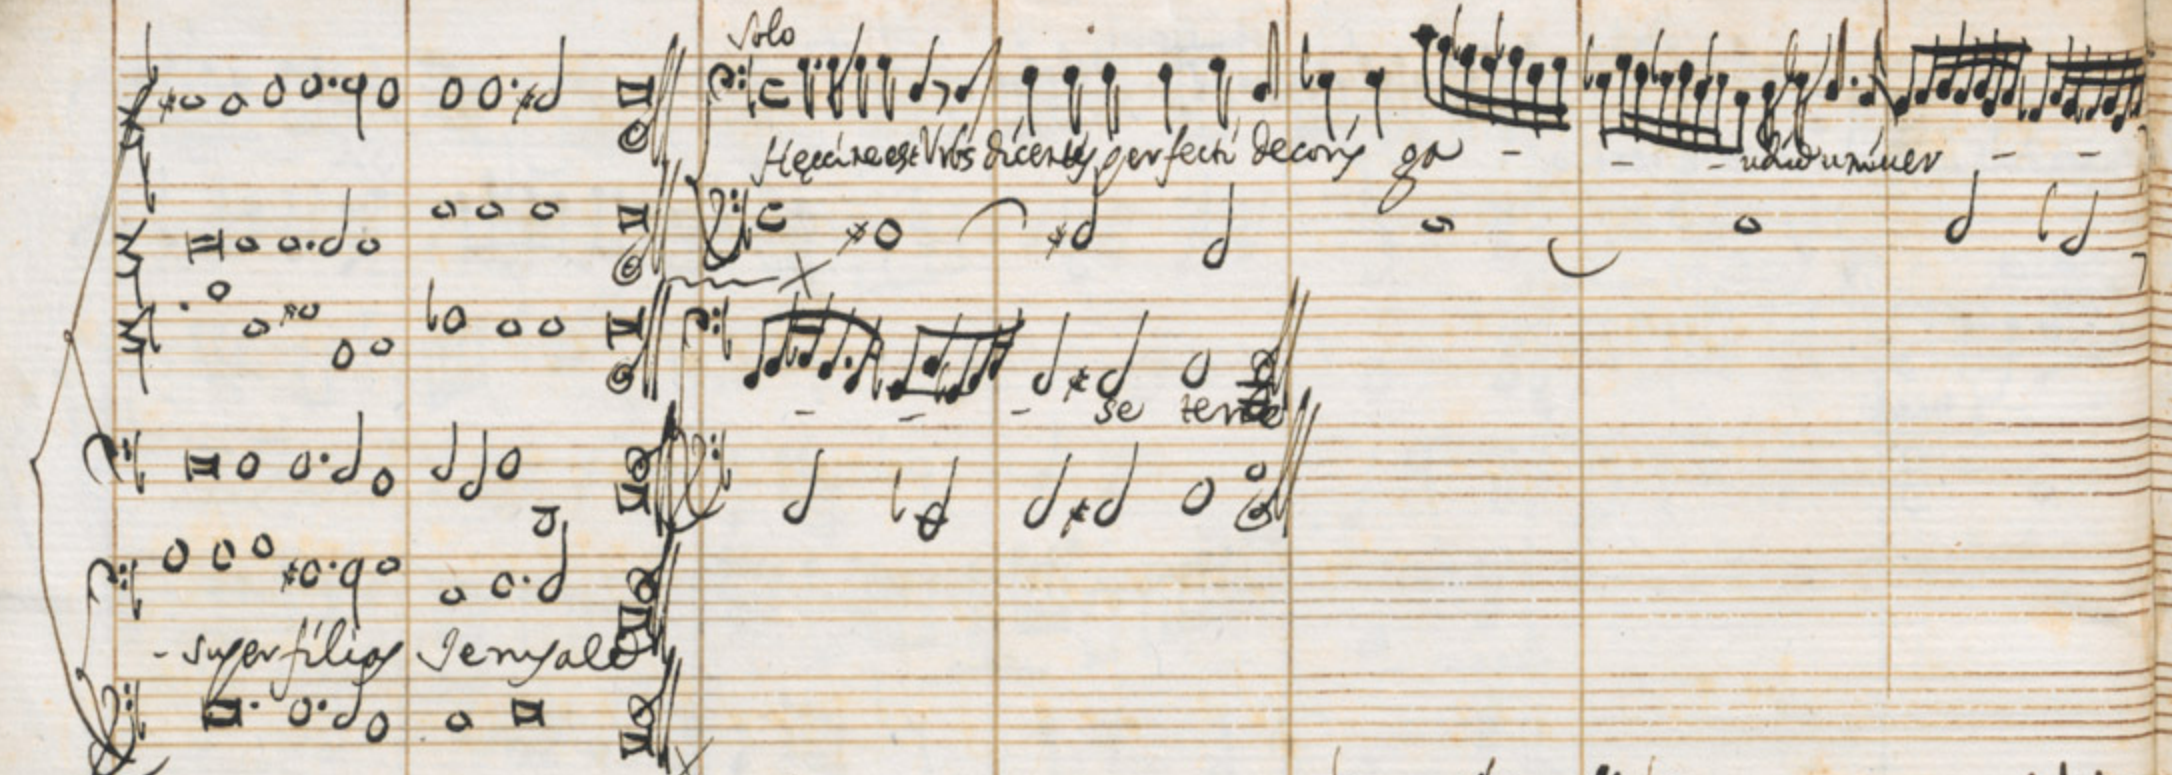 Solo
Hęccine est Vrbs dicentes perfecti decoris ga - - - udiū uniuer - -
- - - se terrae
- super filias Jerusalē